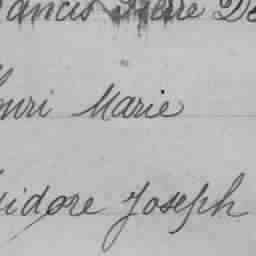 ancis Pierre De
enri Marie
sidore Joseph